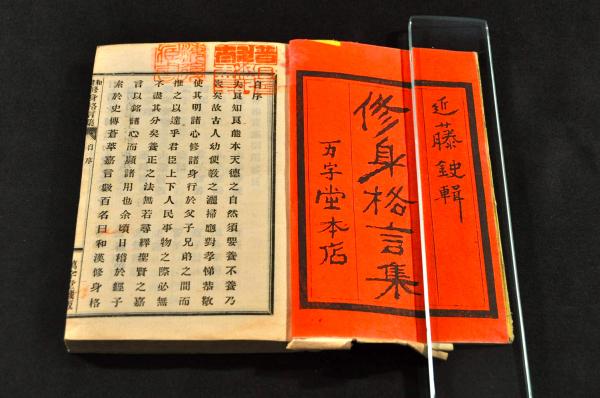 近藤鉞輯
修身格言集
万字堂本店
自序
夫良知良能本天德之自然須要養不養乃
喪矣故古人幼使敎之灑掃應對孝悌恭敬
使其明諸心修諸身行於父子兄弟之間而
推之以達乎君臣上下人民事物之際必無
不盡其分矣養正之法無若尋繹聖賢之嘉
言以銘諸心而顯諸用也余頃日稽於經子
索於史傳薈萃嘉言數百名曰和漢修身格
修身格言集 自序